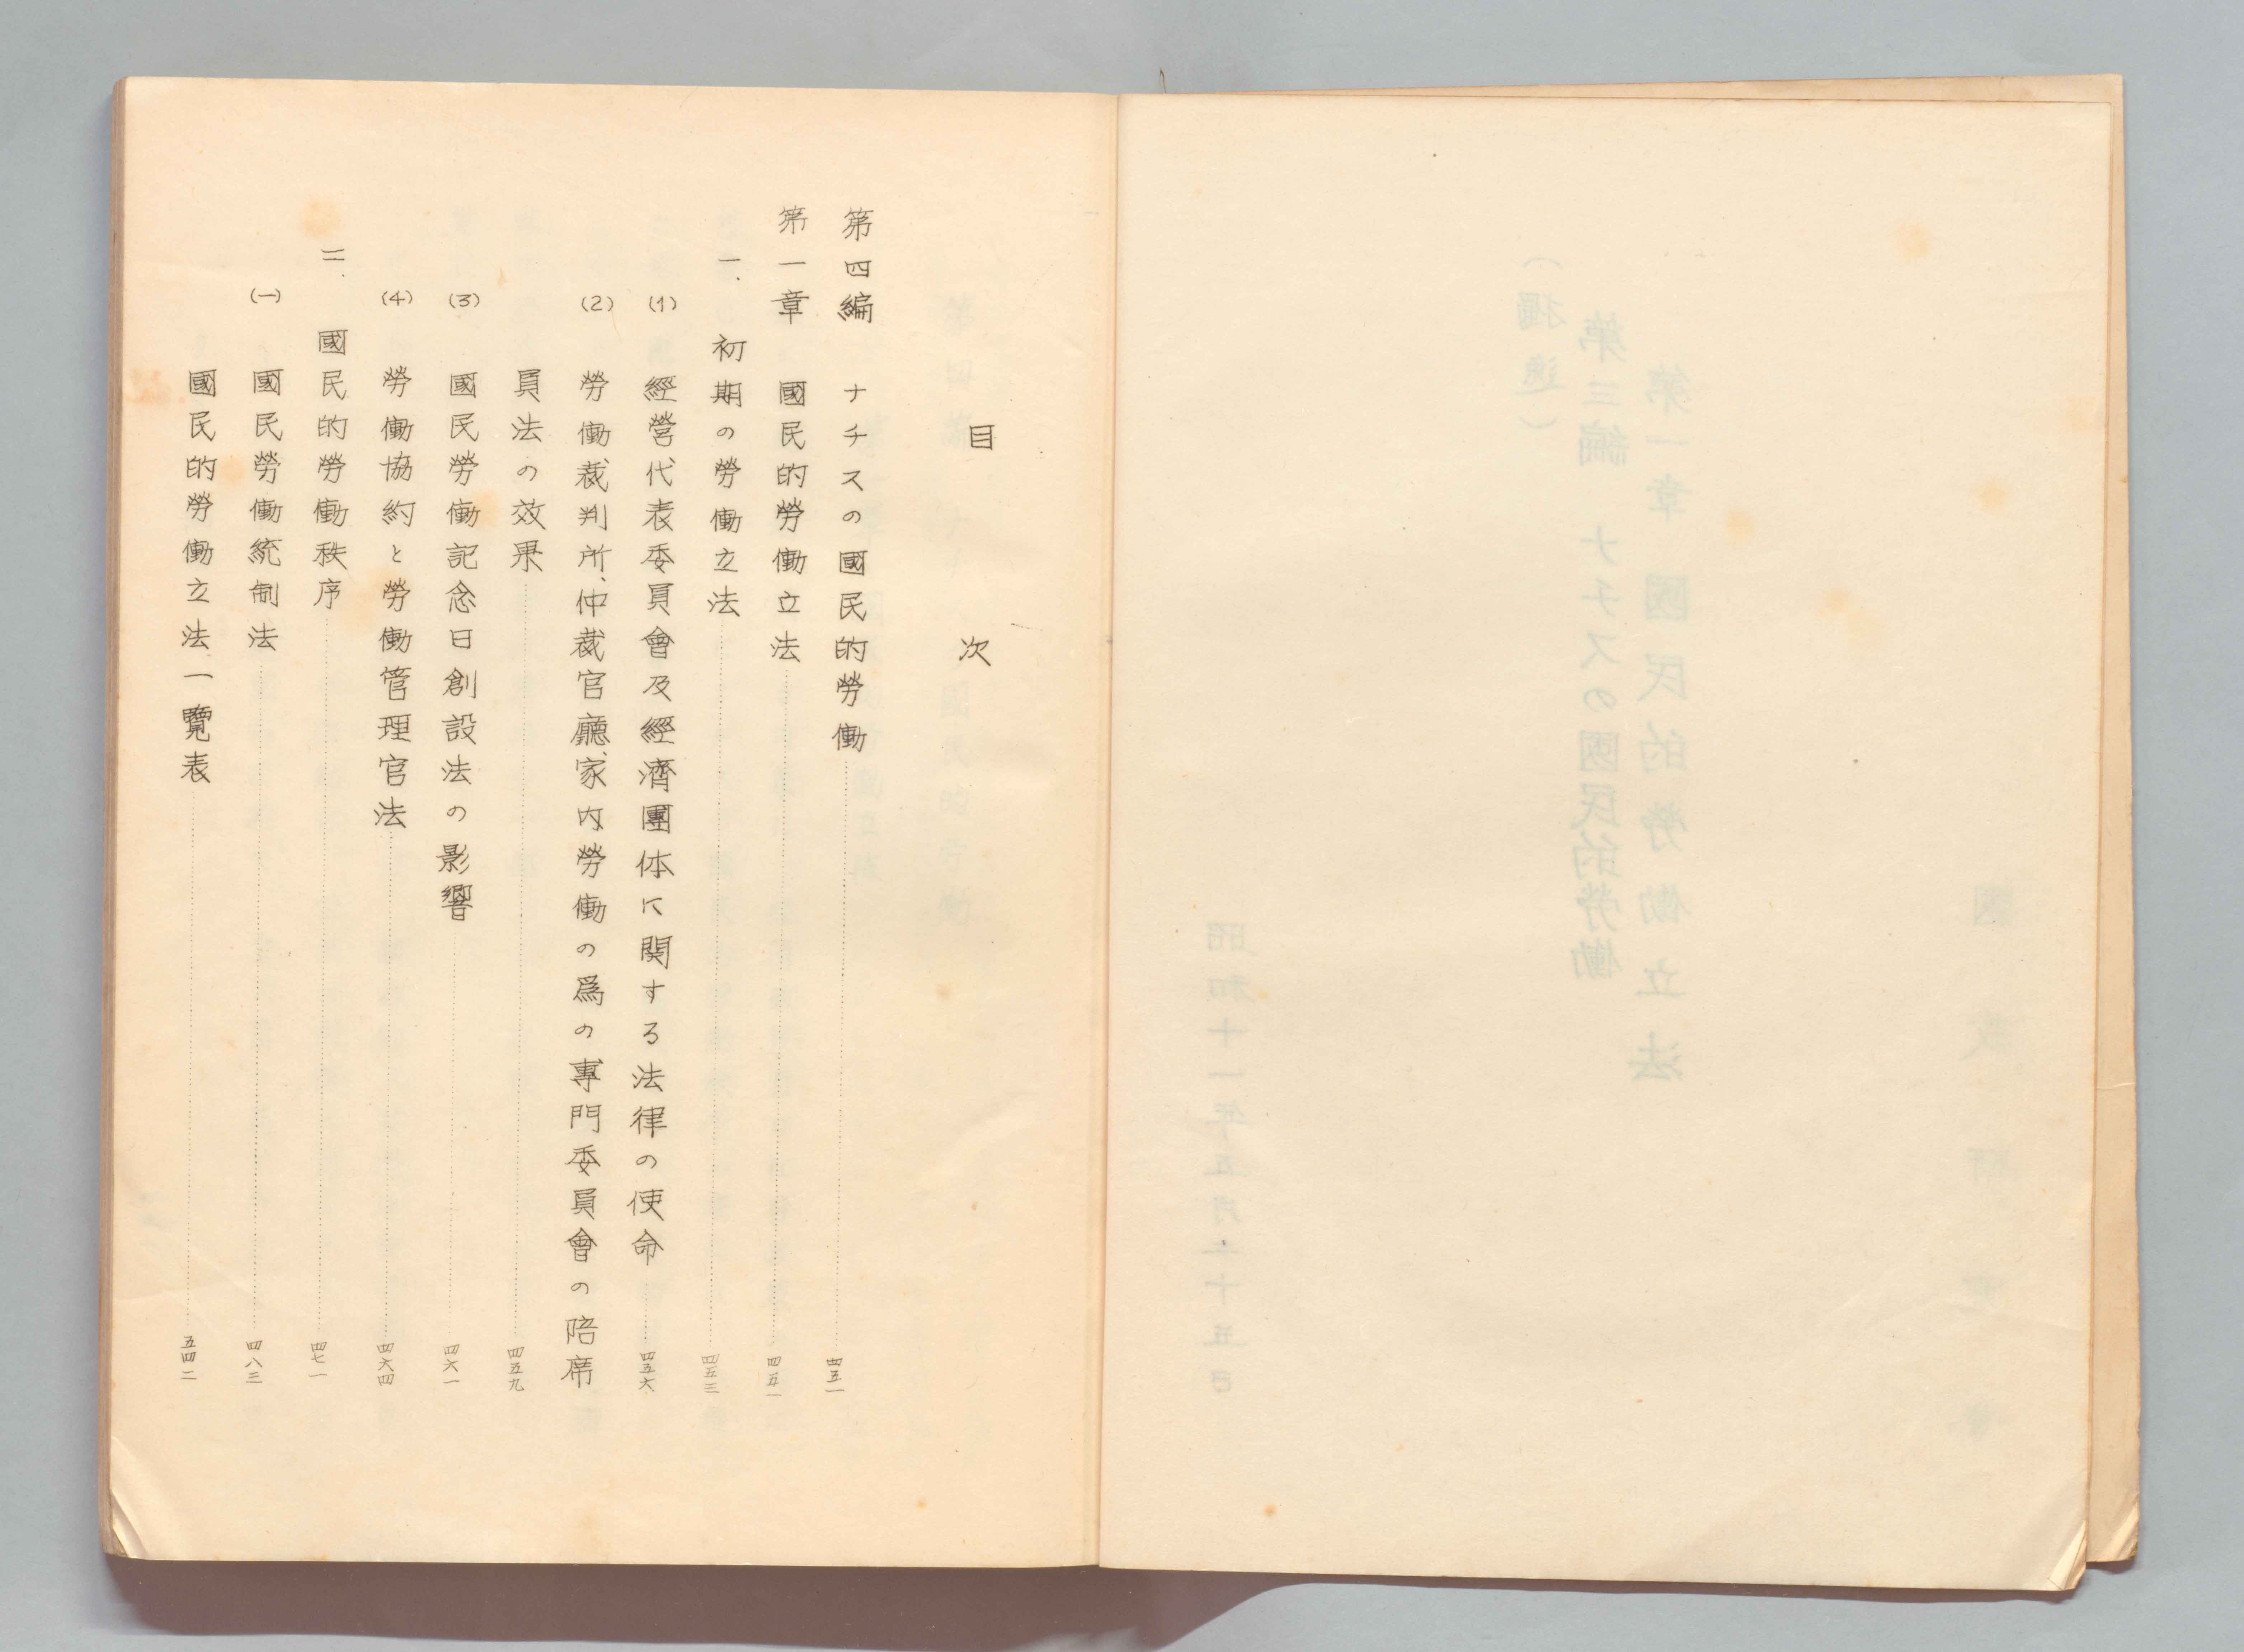 目次
第四編 ナチスの國民的勞働……四五一
第一章 國民的勞働立法……四五一
一、初期の勞働立法……四五三
(1) 經營代表委員會及經濟團体に関する法律の使命……四五六
(2) 勞働裁判所、仲裁官廳、家内勞働の爲の專門委員會の陪席
員法の效果……四五九
(3) 國民勞働記念日創設法の影響……四六一
(4) 勞働協約と勞働管理官法……四六四
二、國民的勞働秩序……四七一
(一) 國民勞働統制法……四八三
國民的勞働立法一覽表……五四二